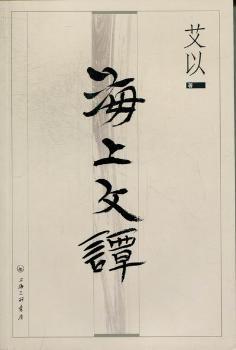 艾以
著
海上文譚
上海三联书店